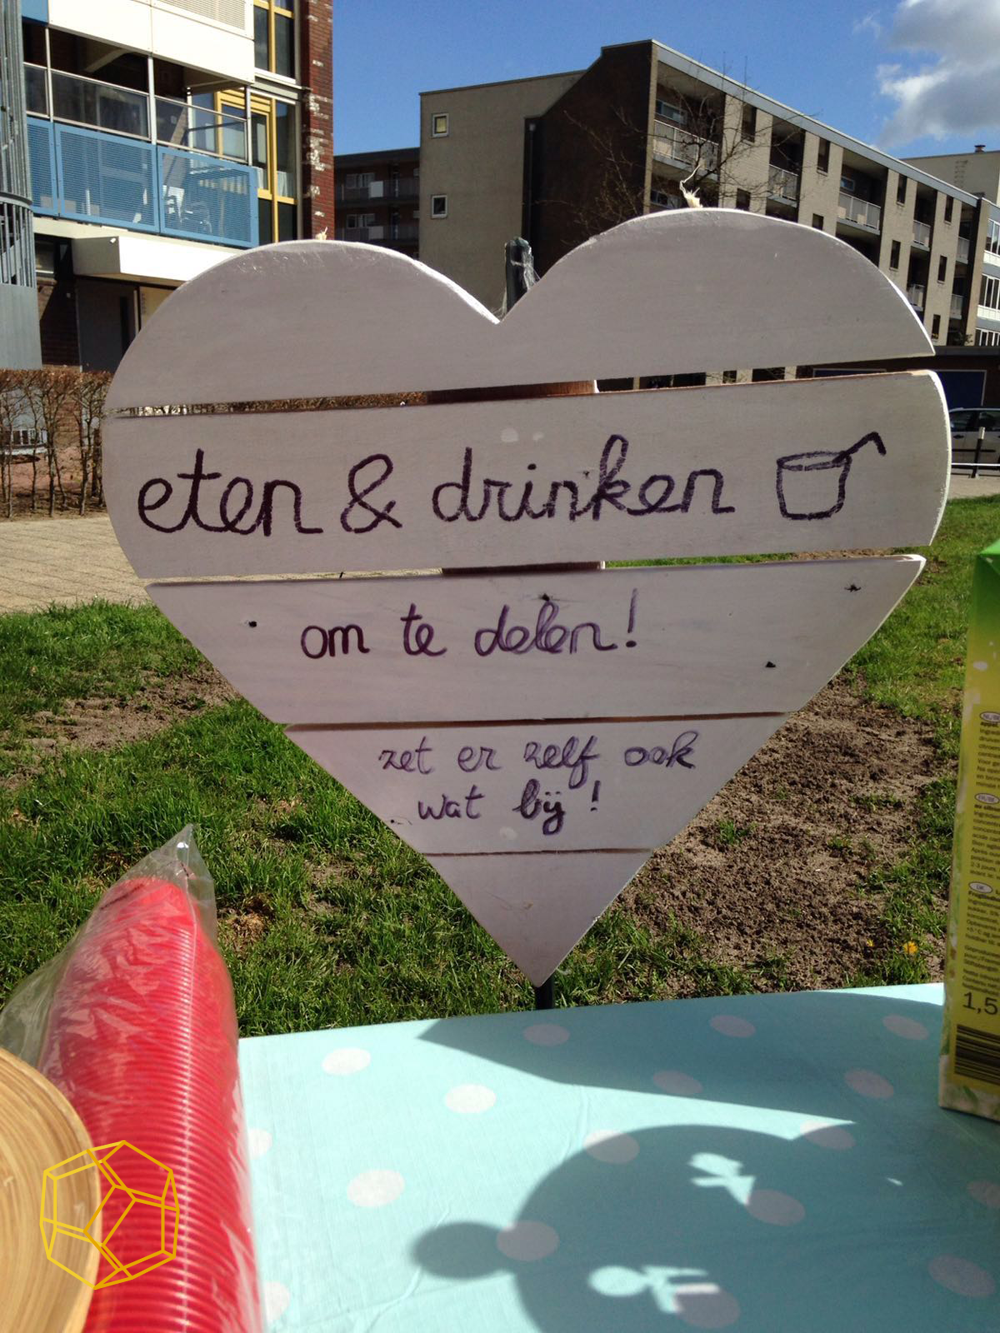 eten & drinken
om te delen!
zet er zelf ook
wat bij!
1,5